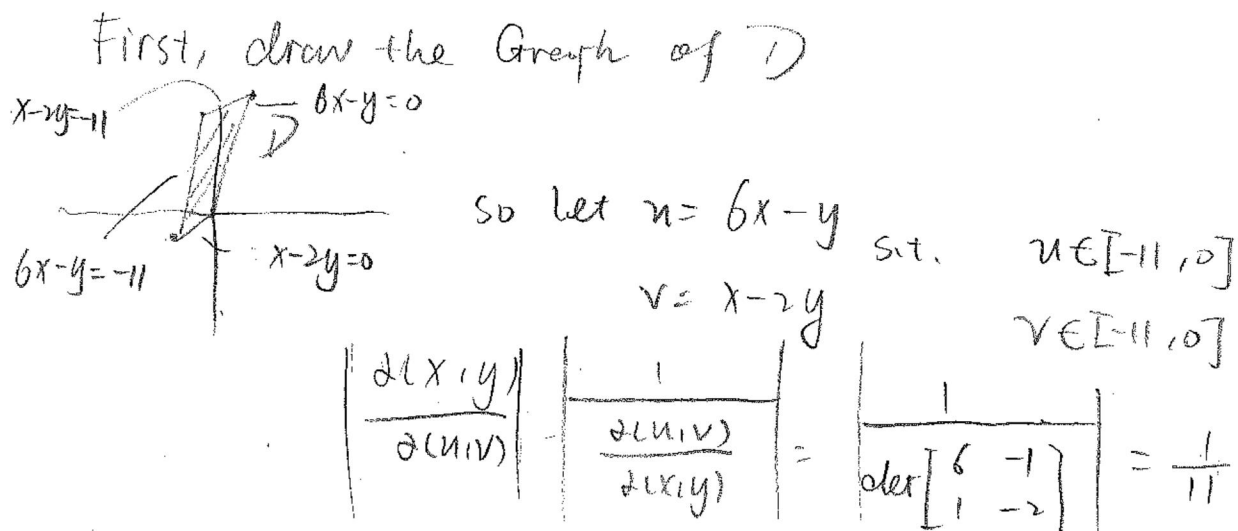 First, draw the Graph of D
x-2y=-11
6x-y=0
D
6x-y=-11
x-2y=0
so let u= 6x-y
v= x-2y
s.t.
u∈[-11,0]
v∈[-11,0]
|∂(x,y)/∂(u,v)| = |1/(∂(u,v)/∂(x,y))| = |1/det[6 -1; 1 -2]| = 1/11